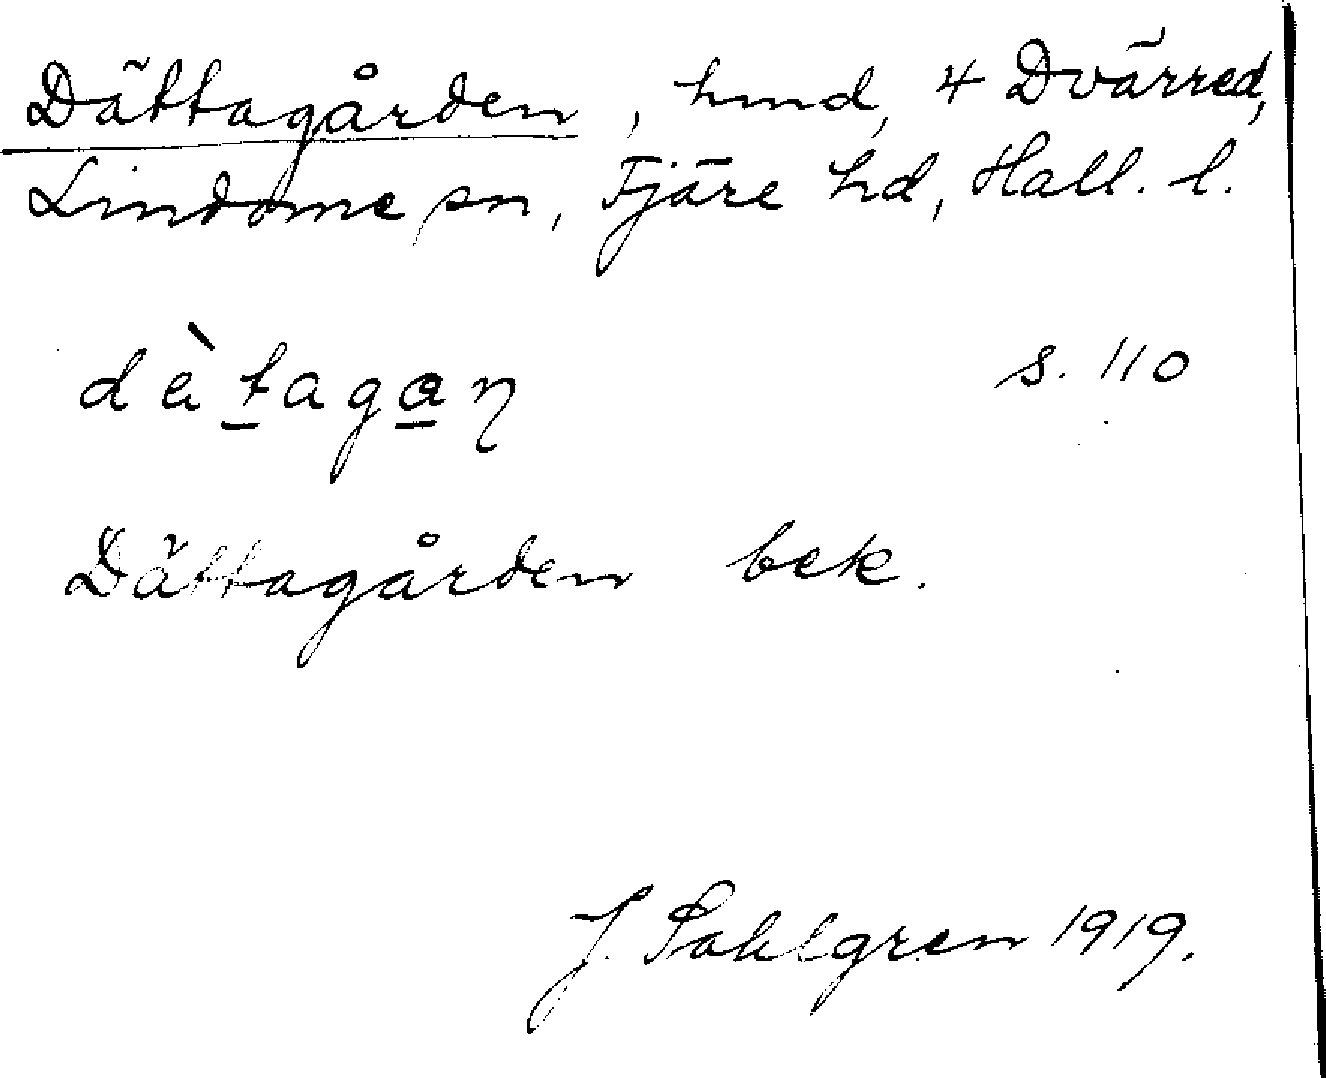 Dättagården, hmd, 4 Dvärred,
Lindome sn, Fjäre hd, Hall. l.
dὰtagaη s. 110
Dättagården bek.
J. Sahlgren 1919.